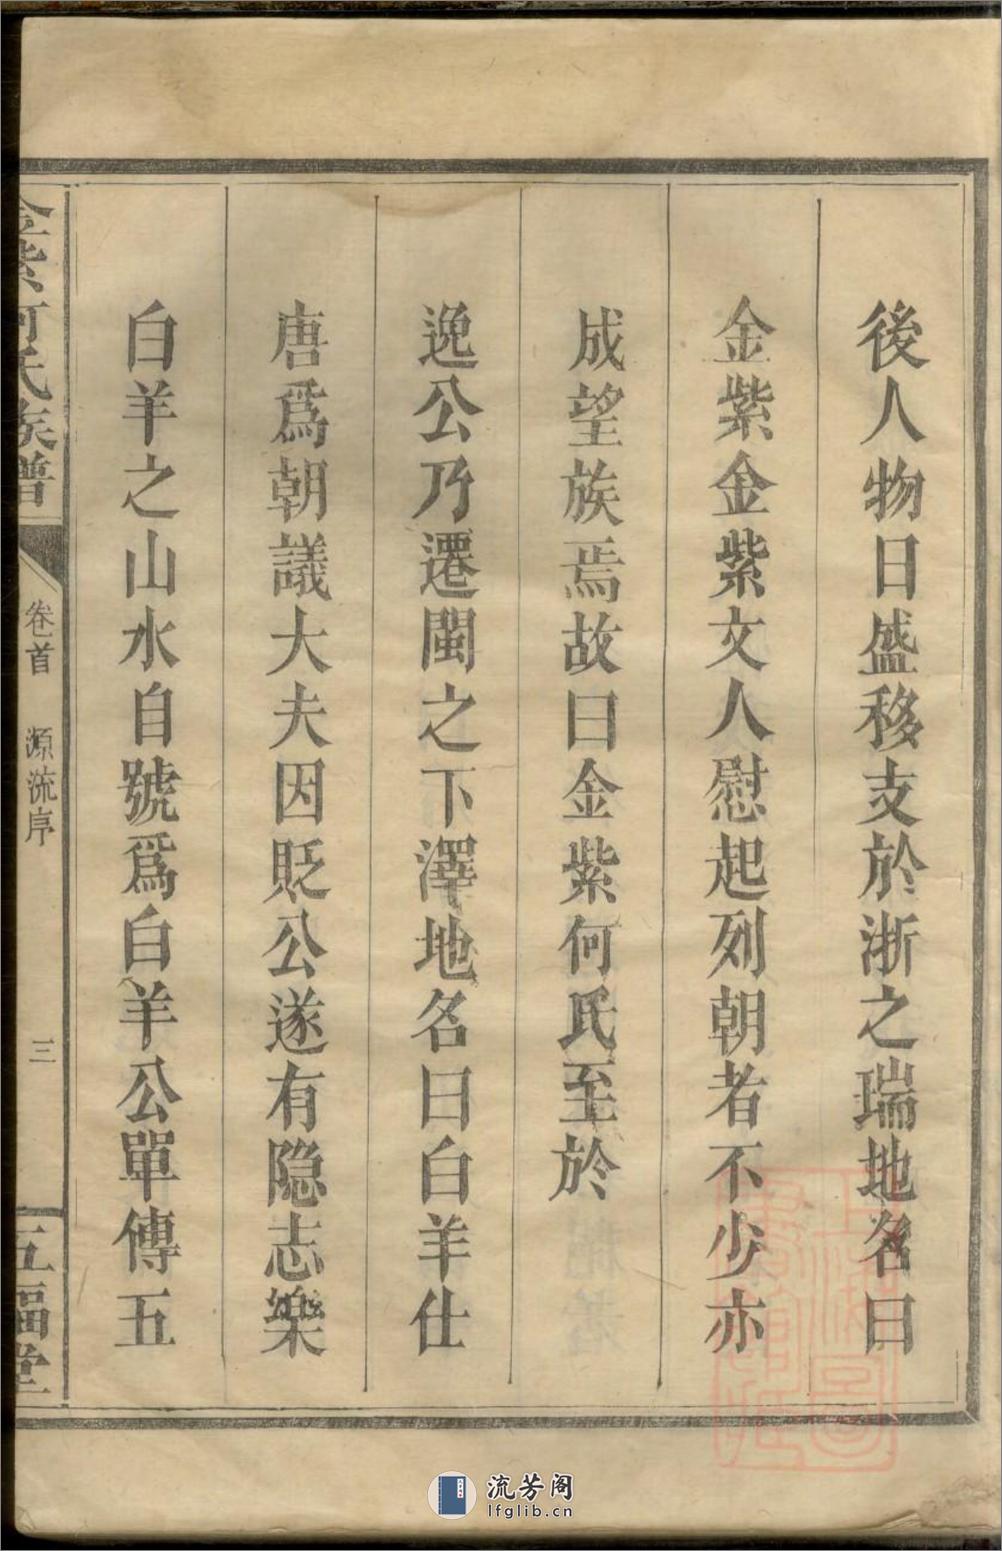 後人物日盛移支於浙之瑞地名曰
金紫金紫文人慰起列朝者不少亦
成望族焉故曰金紫何氏至於
逸公乃遷閩之下澤地名曰白羊仕
唐爲朝議大夫因貶公遂有隐志樂
白羊之山水自號爲白羊公單傳五
金紫何氏族譜
卷首 源流序
三
五福堂
流芳阁
lfglib.cn